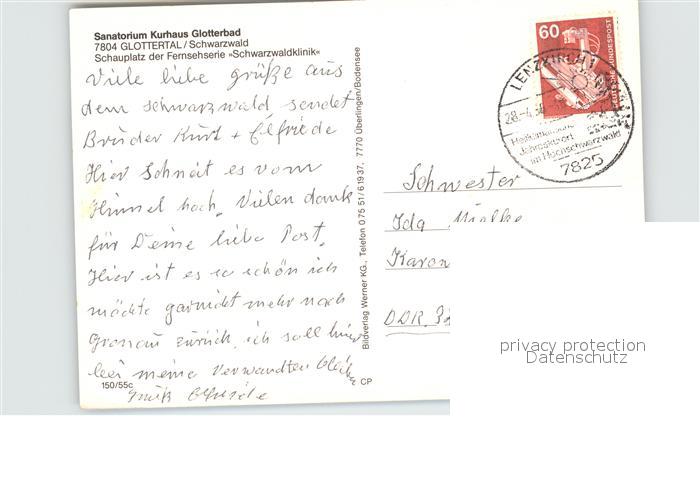 Sanatorium Kurhaus Glotterbad
7804 GLOTTERTAL/Schwarzwald
Schauplatz der Fernsehserie »Schwarzwaldklinik«
Viele liebe grüße aus
dem schwarzwald sendet
Bruder Kurt + Elfriede
Hier Schneit es vom
Himmel hoch. Vielen dank
für Deine liebe Post.
Hier ist es so schön ich
möchte garnicht mehr nach
Gronau zurück, ich soll hier
bei meine Verwandten
gruß Elfriede
150/55c
CP
Bildverlag Werner KG., Telefon 0 75 51/6 19 37, 7770 Überlingen/Bodensee
60
DEUTSCHE BUNDESPOST
LENZKIRCH 1
28.-4.
Heilklimatischer
Jahreskurort
im Hochschwarzwald
7825
Schwester
Ida Mielke
DDR
privacy protection
Datenschutz